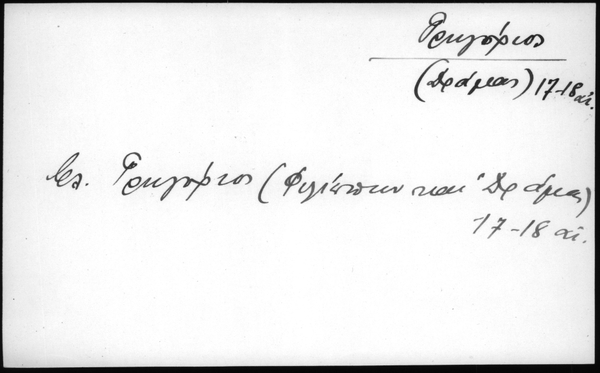 Γρηγόριος
(Δράμας) 17-18 αἰ.
βλ. Γρηγόριος (Φιλίππων καὶ Δράμας)
17-18 αἰ.